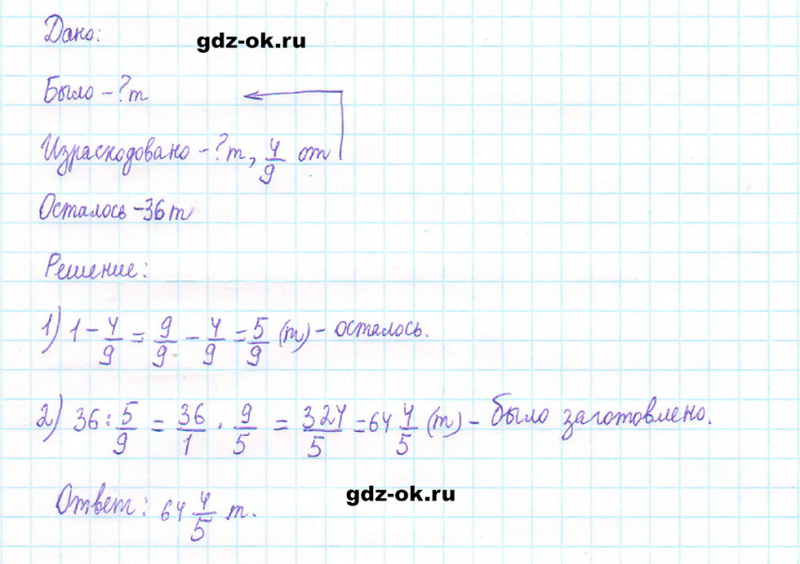 Дано:
gdz-ok.ru
Было - ? т
Израсходовано - ? т, 4/9 от
Осталось - 36 т
Решение:
1) 1 - 4/9 = 9/9 - 4/9 = 5/9 (т) - осталось.
2) 36 : 5/9 = 36/1 · 9/5 = 324/5 = 64 4/5 (т) - было заготовлено.
gdz-ok.ru
Ответ: 64 4/5 т.